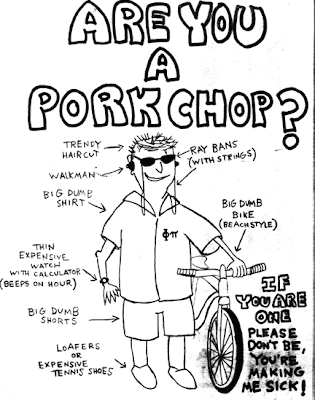 ARE YOU
A
PORK CHOP?
TRENDY
HAIRCUT
RAY BANS
(WITH STRINGS)
WALKMAN
BIG DUMB
SHIRT
BIG DUMB
BIKE
(BEACH STYLE)
ΦΠ
THIN
EXPENSIVE
WATCH
WITH CALCULATOR
(BEEPS ON HOUR)
BIG DUMB
SHORTS
LOAFERS
OR
EXPENSIVE
TENNIS SHOES
IF
YOU ARE
ONE
PLEASE
DON'T BE,
YOU'RE
MAKING
ME SICK!